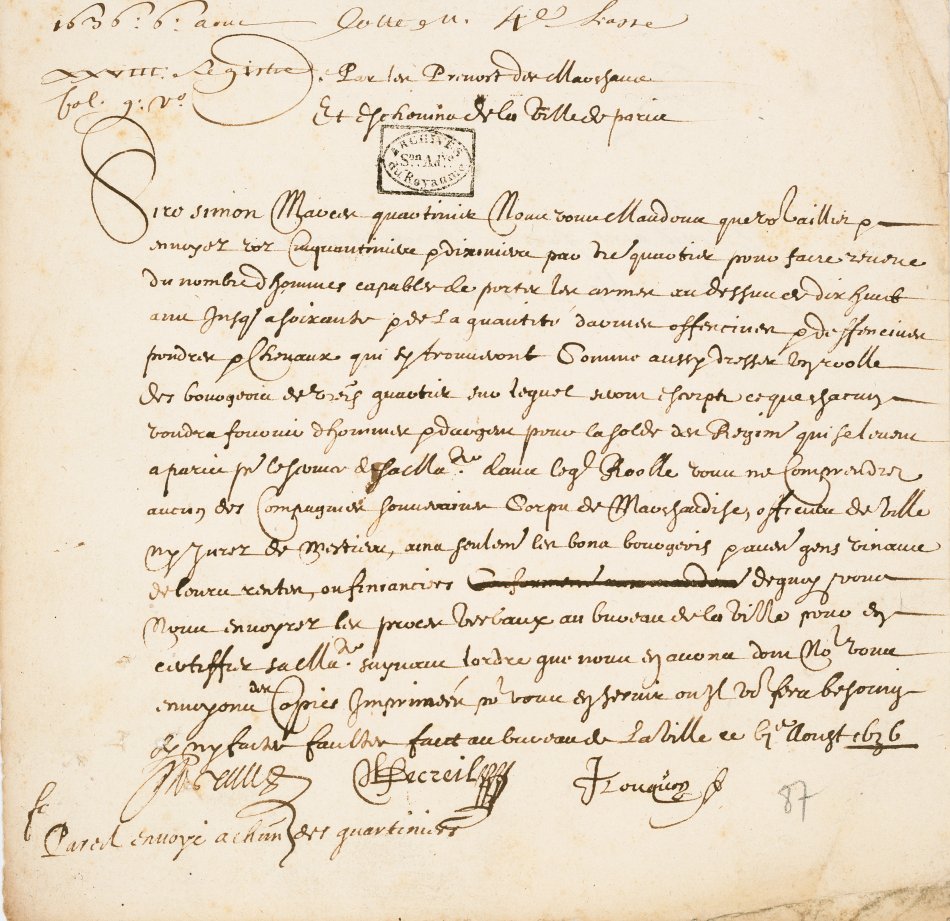 1636. 6. aout Cotte 4e Liasse
XXVIII. Registre
fol. 9. vo
Par les Prevost des Marchans
Et Eschevins de la Ville de paris
ARCHIVES
Son Adve
du Royaume
Sire simon Marces quartinier Nous vous Mandons que vos bailliez
envoyer vos Cinquantiniers & dixiniers par vre quartier pour faire reveue
du nombre d hommes capables de porter les armes au dessus de dix huict
ans Jusqs a soixante & de la quantité d armes offencives & deffencives
poudres & chevaux qui sy trouveront Comme aussy dresser un roolle
des bourgeois de quartier sur lequel serom escript ce que chacun
voudra fournir d hommes & dargent pour la solde des Regim qui se levent
a paris pr le service de sa Mate dans leql Roolle vous ne Comprendrez
aucun des Compagnies souveraines Corps de Marchandise, officiers de Ville
ny Jurez de Mestiers, ains seulemt les bons bourgeois & aues gens vivans
de leurs rentes, ou financiers de quoy vous
Nous envoyrez les proces verbaux au bureau de la Ville pour en
certiffier sa Mate. suyvant lordre que nous en avons dont No vous
envoyons des Copies Imprimées pr vous en servir ou Il vo sera besoing
sy ny faictes faulte faict au bureau de La Ville ce vie Aoust 1636
De creil
87
Pareil envoyé a chun des quartiniers